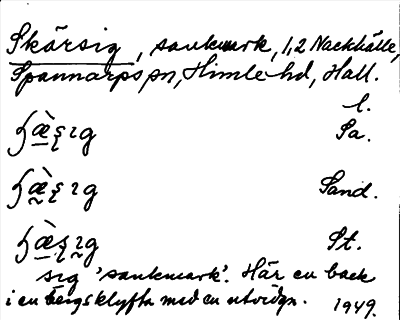 Skärsig, sankmark, 1,2 Nackhälle,
Spannarps sn, Himle hd, Hall.
l.
Sa.
Sand.
St.
sig 'sankmark'. Här en back
i en bergsklyfta med en utvidgn. 1949.